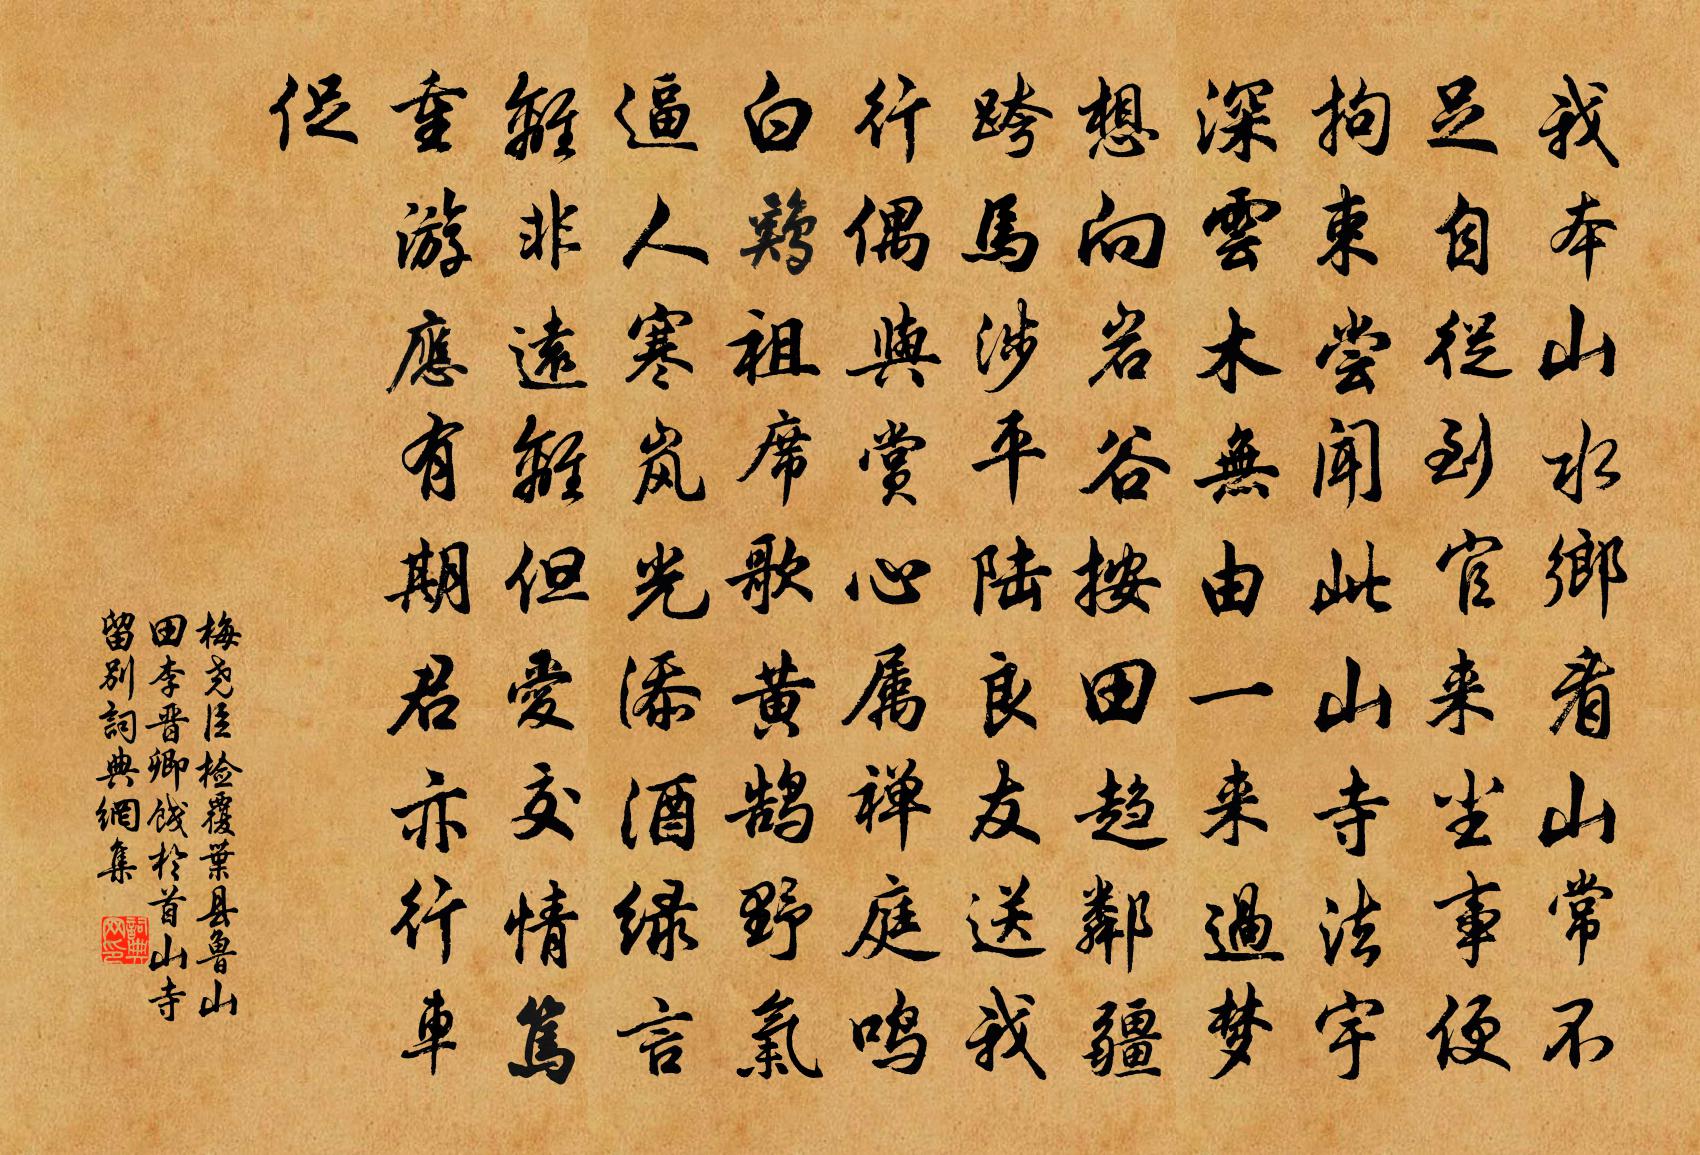 我本山水鄉看山常不
足自從到官来尘事便
拘束嘗聞此山寺法宇
深雲木無由一来過梦
想向岩谷按田趋鄰疆
跨馬涉平陆良友送我
行偶與賞心属禅庭鸣
白鷄祖席歌黄鹄野氣
逼人寒岚光添酒绿言
離非遠離但愛交情篤
重游應有期君亦行車
促
梅尧臣检覆葉县鲁山
田李晋卿餞於首山寺
留别詞典網集
詞典
网印